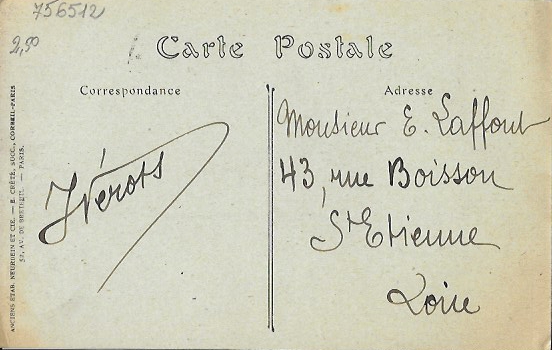 756512
2,50
Carte Postale
Correspondance
Adresse
Monsieur E. Laffont
43, rue Boisson
St Etienne
Loire
ANCIENS ETAB. NEURDEIN ET CIE. — E. CRÉTÉ, SUCC., CORBEIL-PARIS
52, AV. DE BRETEUIL. — PARIS.